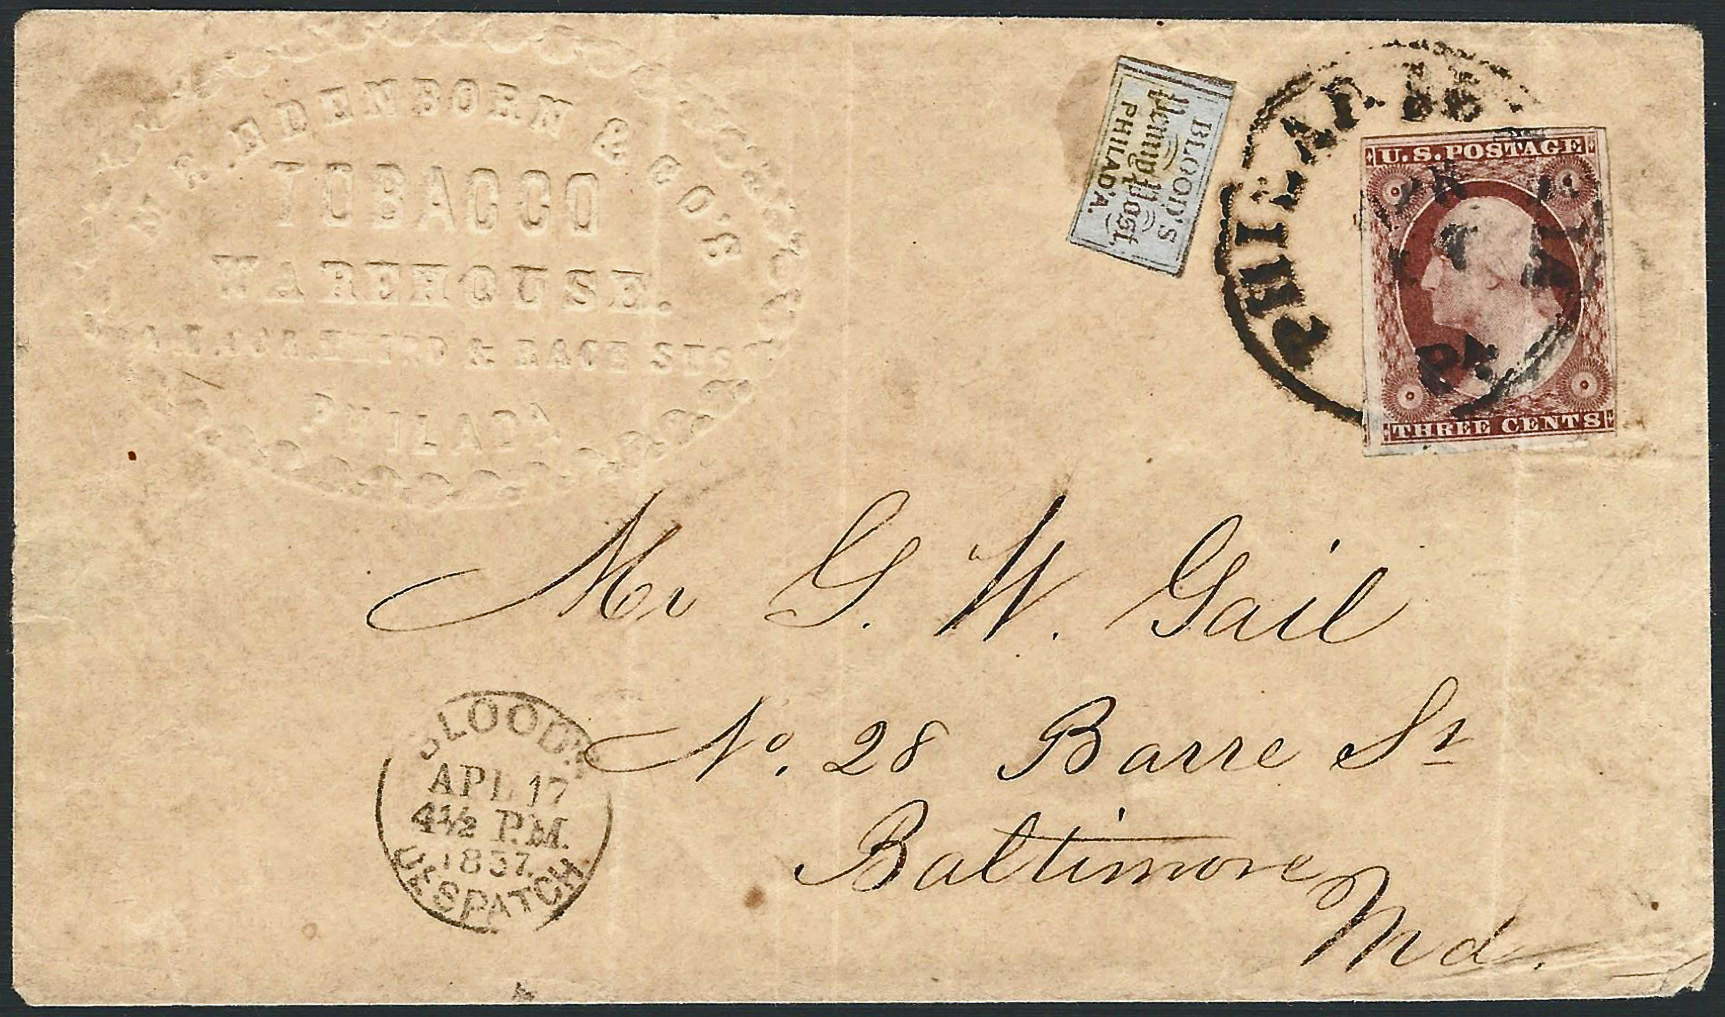 EDENBORN & CO'S
TOBACCO
WAREHOUSE.
& RACE STS
PHILADA
BLOOD'S
Penny Post.
PHILAD'A.
PHILADE
PA
U.S. POSTAGE
THREE CENTS
Mr G. W. Gail
No. 28 Barre St
Baltimore
Md.
BLOOD'S
APL 17
4½ P.M.
1857.
DESPATCH